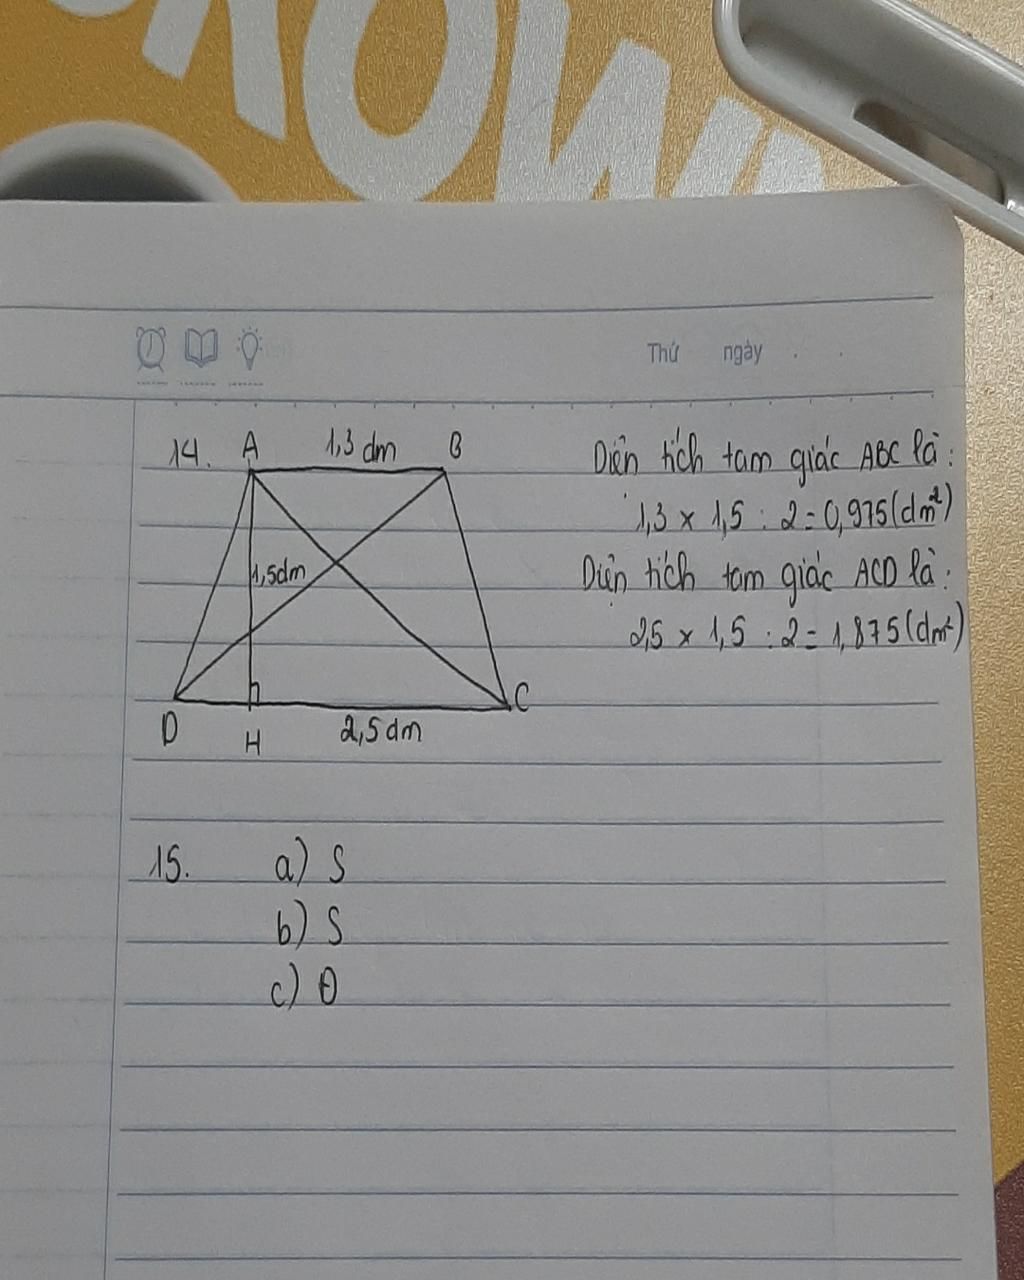 Thứ ngày . .
14. A 1,3 dm B
1,5dm
D H 2,5 dm C
Diện tích tam giác ABC là:
1,3 x 1,5 : 2 = 0,975 (dm²)
Diện tích tam giác ACD là:
2,5 x 1,5 : 2 = 1,875 (dm²)
15. a) S
b) S
c) Đ